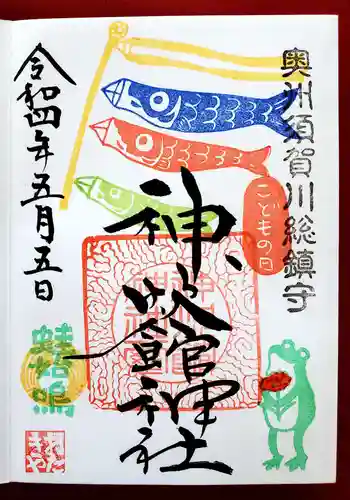 奥州須賀川総鎮守
こどもの日
神炊館神社
令和四年五月五日
蛙始鳴